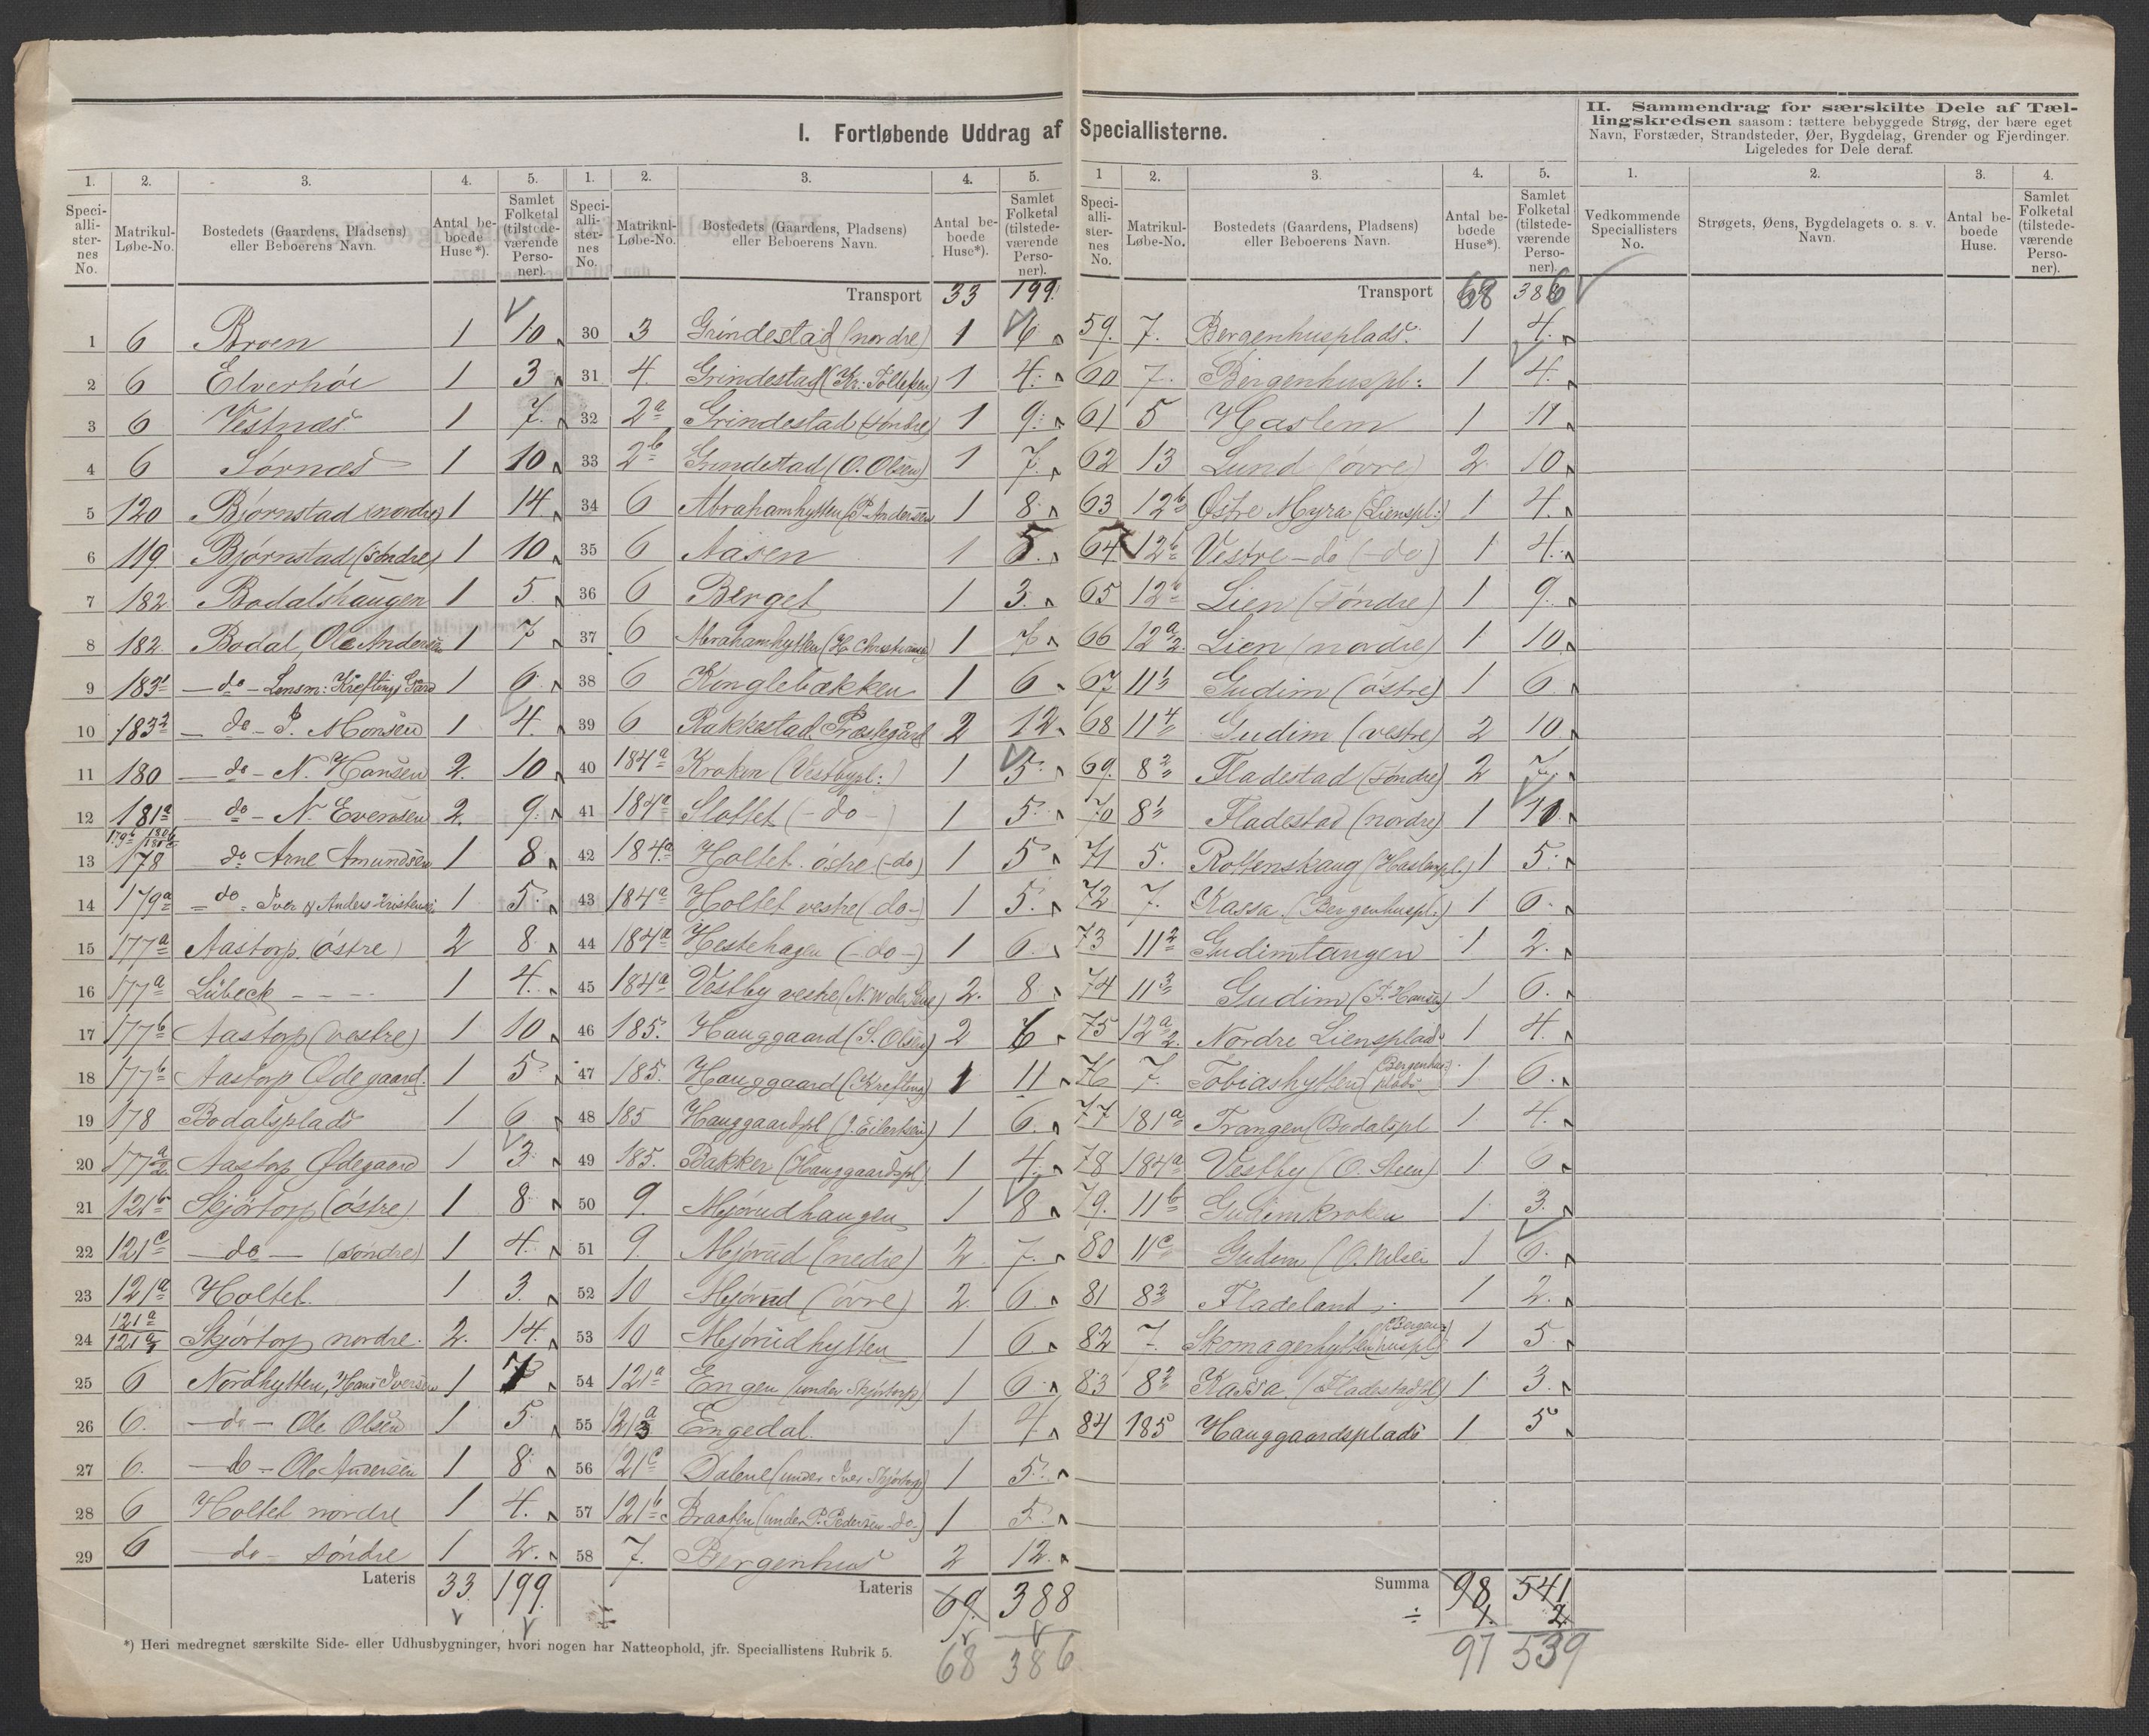 I. Fortløbende Uddrag af Speciallisterne.
II. Sammendrag for særskilte Dele af Tæl-
lingskredsen saasom: tættere bebyggede Strøg, der bære eget
Navn, Forstæder, Strandsteder, Øer, Bygdelag, Grender og Fjerdinger.
Ligeledes for Dele deraf.
1. 2. 3. 4. 5.
Speci-alli-ster-nes No. Matrikul-Løbe-No. Bostedets (Gaardens, Pladsens) eller Beboerens Navn. Antal be-boede Huse*). Samlet Folketal (tilstede-værende Perso-ner).
1 6 Broen 1 10
2 6 Elverhöi 1 3
3 6 Vestnæs 1 7.
4 6 Sørnæs 1 10
5 120 Bjørnstad (nordre) 1 14
6 119. Bjørnstad (söndre) 1 10
7 182 Bodalshaugen 1 5.
8 182. Bodal, Ole Andersen 1 7
9 183 1 - do - Lensm: Kreftings Gård 1 6
10 183 2 - do - P. Monsen 1 4.
11 180 - do - N. Hansen 2. 10
12 181a do - N. Evensen 2. 9.
13 178 do Arne Amundsen 1 8
14 179a - do - Iver & Anders Kristensen 1 5.
15 177a Aastorp (östre) 2 8
16 177a Lübeck - - - 1 4.
17 177b Aastorp (vestre) 1 10
18 177b Aastorp Ödegaard. 1 5
19 178 Bodalsplads 1 6
20 177a/2 Aastorp Ödegaard 1 3.
21 121b Skjörtorp (östre) 1 8
22 121c - do - (söndre) 1 4.
23 121a Holtet. 1 3.
24 121a Skjörtorp nordre. 2. 14.
25 6 Nordhytten, Hans Iversen 1 7
26 6. - do - Ole Olsen 1 5.
27 6. - do - Ole Andersen 1 8
28 6 Holtet nordre 1 4.
29 6 - do - söndre 1 2.
Lateris 33. 199.
1. 2. 3. 4. 5.
Speci-alli-ster-nes No. Matrikul-Løbe-No. Bostedets (Gaardens, Pladsens) eller Beboerens Navn. Antal be-boede Huse*). Samlet Folketal (tilstede-værende Perso-ner).
Transport 33 199.
30 3 Grindestad (nordre) 1 6
31 4. Grindestad (Kr. Tollefsen) 1 4.
32 2a Grindestad (söndre) 1 9.
33 2b Grindestad (O. Olsen) 1 7.
34 6 Abrahamhytten (P. Andersen) 1 8
35 6 Aasen 1 5.
36 6 Berget 1 3.
37 6 Abrahamhytten (H. Christiansen) 1 7
38 6 Konglebækken 1 6
39 6 Rakkestad Præstegård 2 12
40 184a Kroken (Vestbypl:) 1 5.
41 184a Slottet (- do -) 1 5.
42 184a Holtet östre (- do) 1 5
43 184a Holtet vestre (do -) 1 5.
44 184a Hestehagen (- do -) 1 6.
45 184a Vestby vestre (N. W. de Seue) 2. 8
46 185. Hauggaard (S. Olsen) 2 6
47 185. Hauggaard (Krefting) 1 11
48 185 Hauggaardpl (J. Eilertsen) 1 6.
49 185. Bakker (Hauggaardspl) 1 4.
50 9. Mjörudhaugen 1 8
51 9. Mjörud (nedre) 2 7.
52 10 Mjörud (övre) 2. 6.
53 10 Mjörudhytten 1 6.
54 121a Engen (under Skjörtorp) 1 6
55 121a/3 Engedal. 1 4
56 121c Dalene (under Iver Skjörtorp) 1 5.
57 121b Braaten (under P. Pedersen - do -) 1 5.
58 7. Bergenhus 2 12.
Lateris 69. 388
68 386
1 2. 3. 4. 5.
Speci-alli-ster-nes No. Matrikul-Løbe-No. Bostedets (Gaardens, Pladsens) eller Beboerens Navn. Antal be-boede Huse*). Samlet Folketal (tilstede-værende Perso-ner).
Transport 68 386
59. 7. Bergenhusplads. 1 4.
60 7. Bergenhuspl: 1 4.
61 5 Haslem 1 11
62 13 Lund (övre) 2 10
63 12b Østre Myra (Lienspl:) 1 4.
64 12b Vestre - do (- do) 1 4.
65 12b Lien (söndre) 1 9.
66 12a/2. Lien (nordre) 1 10
67 11 1 Gudim (östre) 1 6
68 11 4 Gudim (vestre) 2 10
69. 8 2 Fladestad (söndre) 2 7.
70 8 1 Fladestad (nordre) 1 11
71 5. Rottenskaug (Haslempl.) 1 5.
72 7. Kassa (Bergenhuspl:) 1 6.
73 11 2 Gudimtangen 1 2.
74 11 3 Gudim (J. Hansen) 1 6.
75 12a/2. Nordre Liensplads 1 4.
76 7. Tobiashytten (Bergenhusplads) 1 6.
77 181a Trangen (Bodalspl 1 4.
78 184a Vestby (O. Steen) 1 6
79. 11b Gudimkroken 1 3.
80 11c Gudim (O. Nilsen 1 6.
81 8 2 Fladeland 1 2.
82 7. Skomagerhytten (Bergenhuspl) 1 5.
83 8 2 Kassa (Fladestadpl) 1 3.
84 185 Hauggaardsplads 1 5
Summa 98 541
÷ 1. 2
97 539
1. 2. 3. 4.
Vedkommende Speciallisters No. Strøgets, Øens, Bygdelagets o. s. v. Navn. Antal be-boede Huse. Samlet Folketal (tilstede-værende Perso-ner).
*) Heri medregnet særskilte Side- eller Udhusbygninger, hvori nogen har Natteophold, jfr. Speciallistens Rubrik 5.